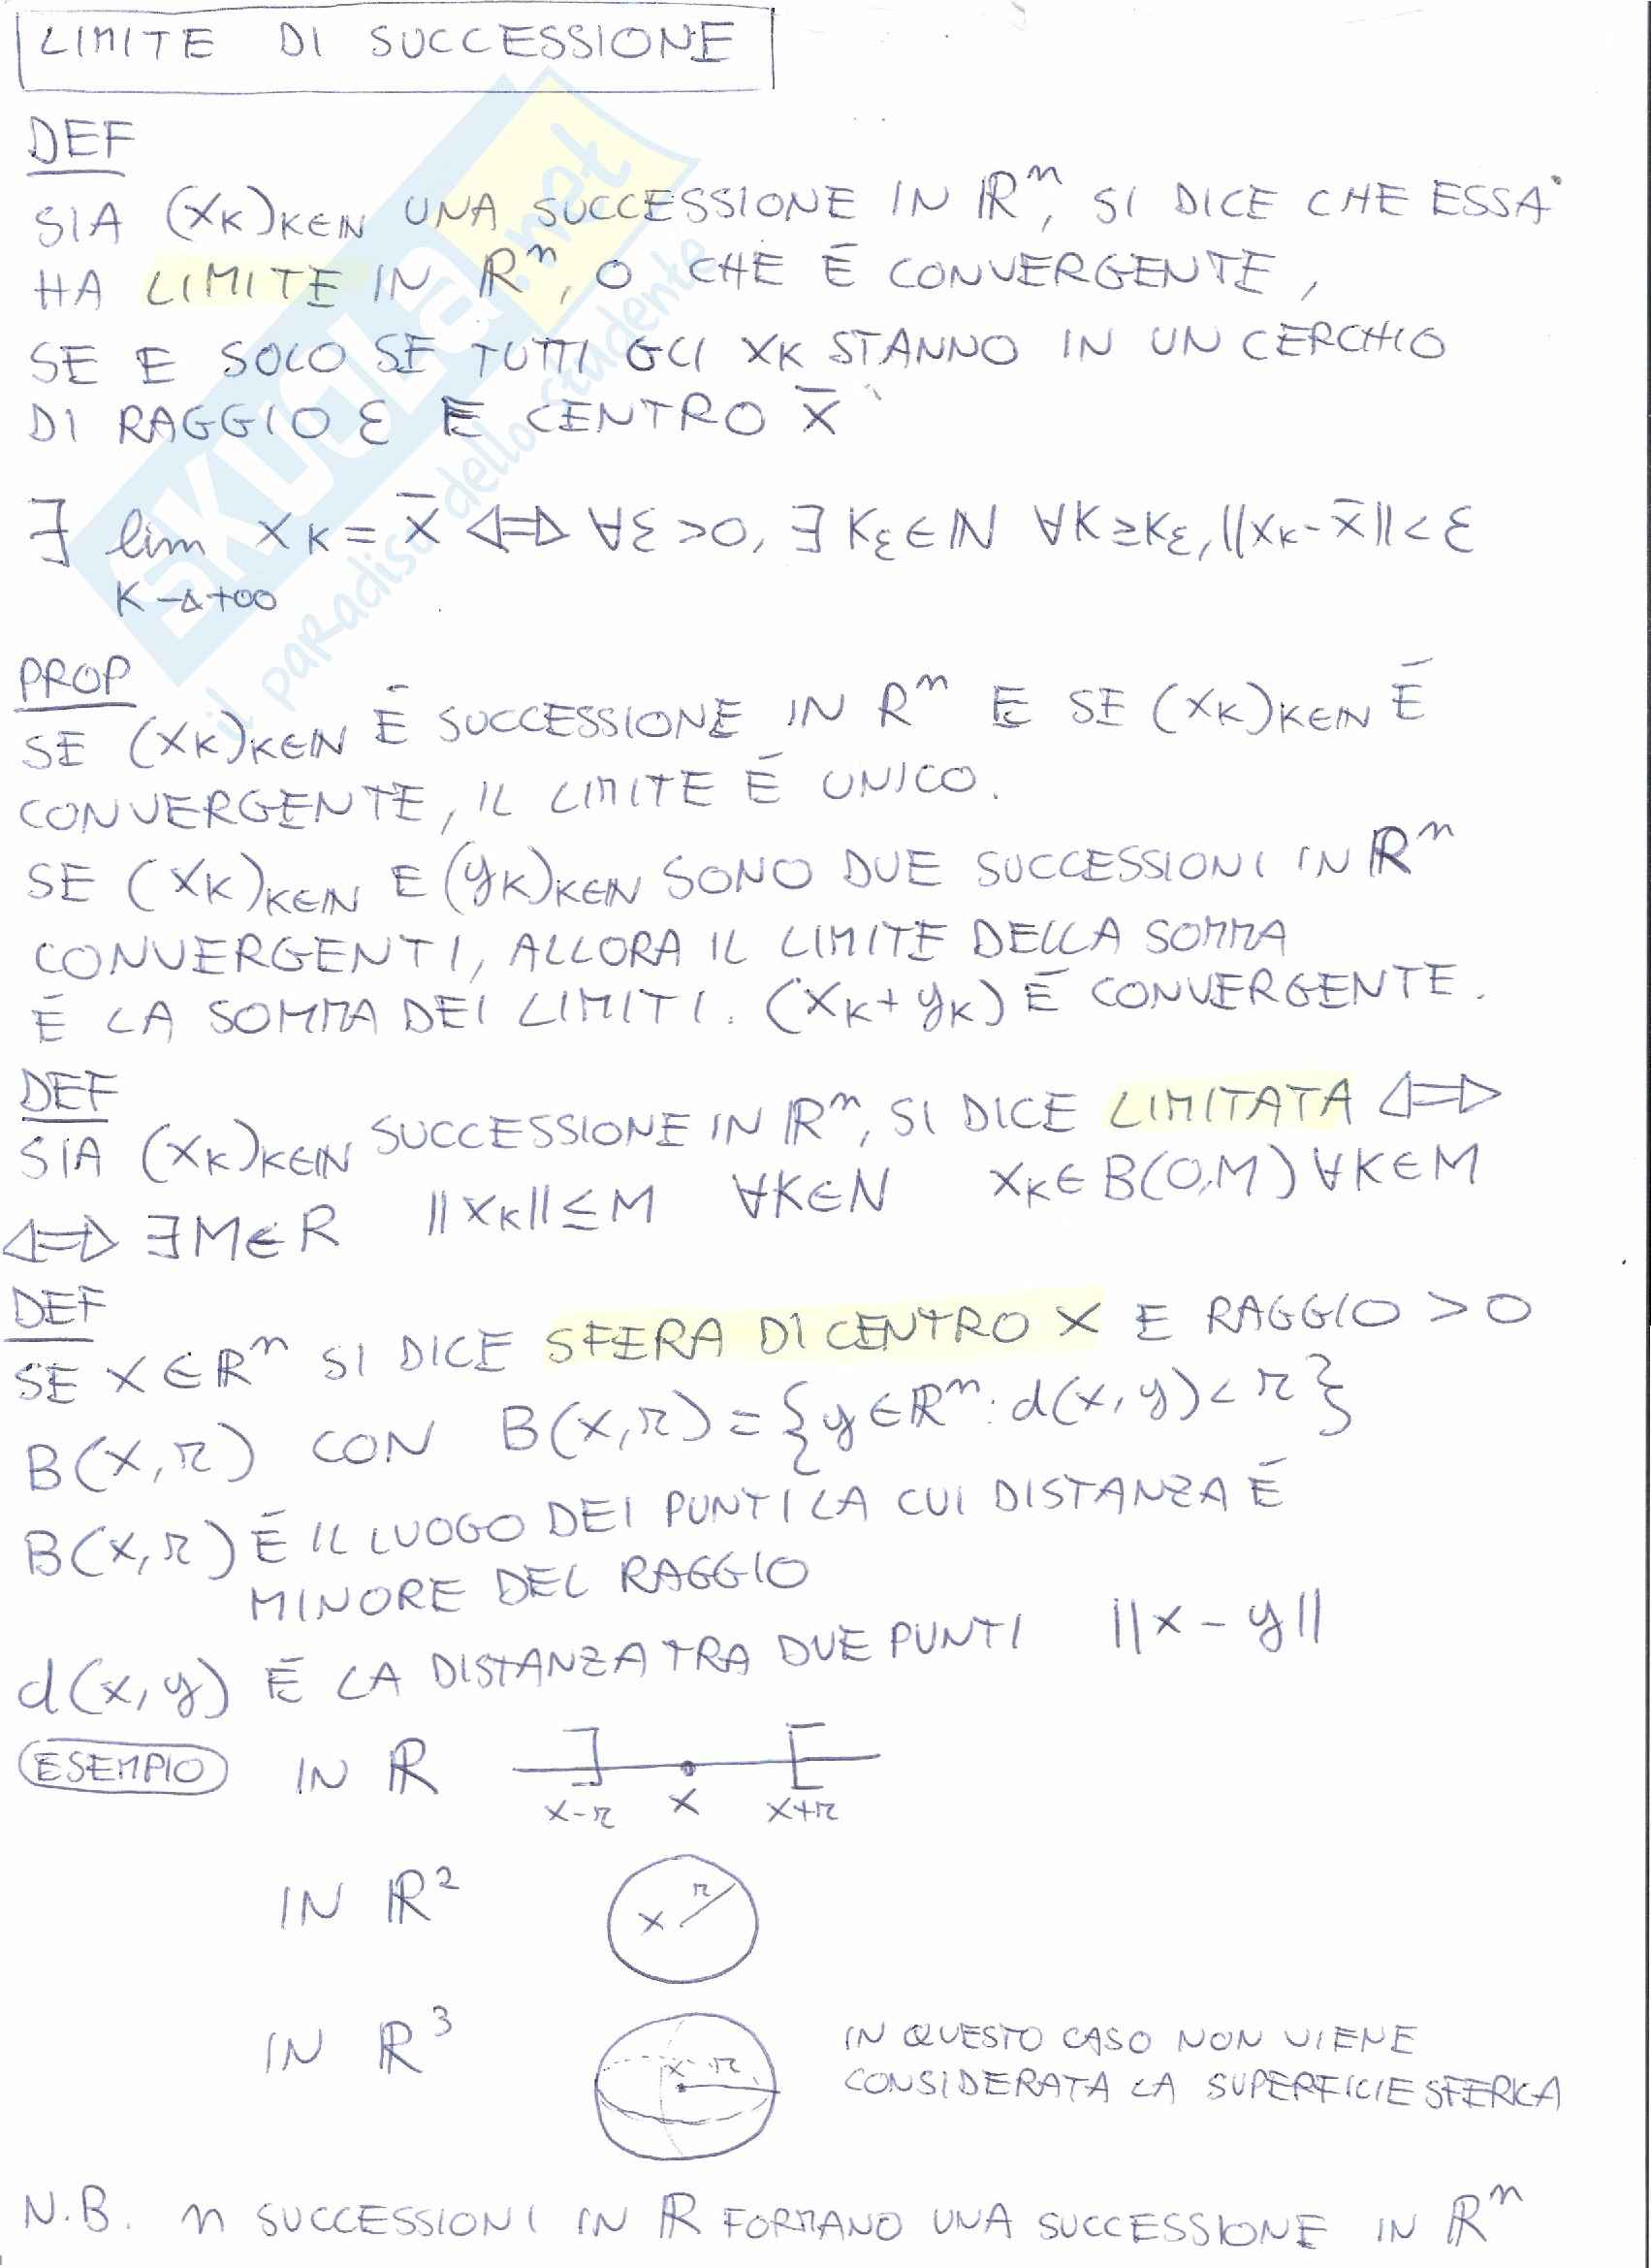 LIMITE DI SUCCESSIONE
DEF
SIA (xₖ)ₖ∈ℕ UNA SUCCESSIONE IN ℝⁿ, SI DICE CHE ESSA
HA LIMITE IN ℝⁿ, O CHE É CONVERGENTE,
SE E SOLO SE TUTTI GLI xₖ STANNO IN UN CERCHIO
DI RAGGIO Ɛ E CENTRO x̄
∃ lim xₖ = x̄ ⟺ ∀Ɛ > 0, ∃ K_Ɛ ∈ ℕ ∀K ≥ K_Ɛ, ||xₖ - x̄|| < Ɛ
K→+∞
PROP
SE (xₖ)ₖ∈ℕ É SUCCESSIONE IN ℝⁿ E SE (xₖ)ₖ∈ℕ É
CONVERGENTE, IL LIMITE É UNICO.
SE (xₖ)ₖ∈ℕ E (yₖ)ₖ∈ℕ SONO DUE SUCCESSIONI IN ℝⁿ
CONVERGENTI, ALLORA IL LIMITE DELLA SOMMA
É LA SOMMA DEI LIMITI. (xₖ + yₖ) É CONVERGENTE.
DEF
SIA (xₖ)ₖ∈ℕ SUCCESSIONE IN ℝⁿ, SI DICE LIMITATA ⟺
⟺ ∃ M ∈ ℝ ||xₖ|| ≤ M ∀K ∈ ℕ xₖ ∈ B(0,M) ∀K ∈ M
DEF
SE x ∈ ℝⁿ SI DICE SFERA DI CENTRO x E RAGGIO > 0
B(x, r) CON B(x, r) = {y ∈ ℝⁿ : d(x, y) < r}
B(x, r) É IL LUOGO DEI PUNTI LA CUI DISTANZA É
MINORE DEL RAGGIO
d(x, y) É LA DISTANZA TRA DUE PUNTI ||x - y||
ESEMPIO IN ℝ
x-r x x+r
IN ℝ² x r
IN ℝ³ x r
IN QUESTO CASO NON VIENE
CONSIDERATA LA SUPERFICIE SFERICA
N.B. n SUCCESSIONI IN ℝ FORMANO UNA SUCCESSIONE IN ℝⁿ
SKUOLA.net
il paradiso dello studente